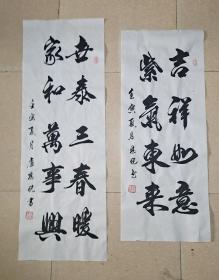 吉祥如意
紫氣東来
壬寅夏月
世泰三春暖
家和萬事興
壬寅夏月